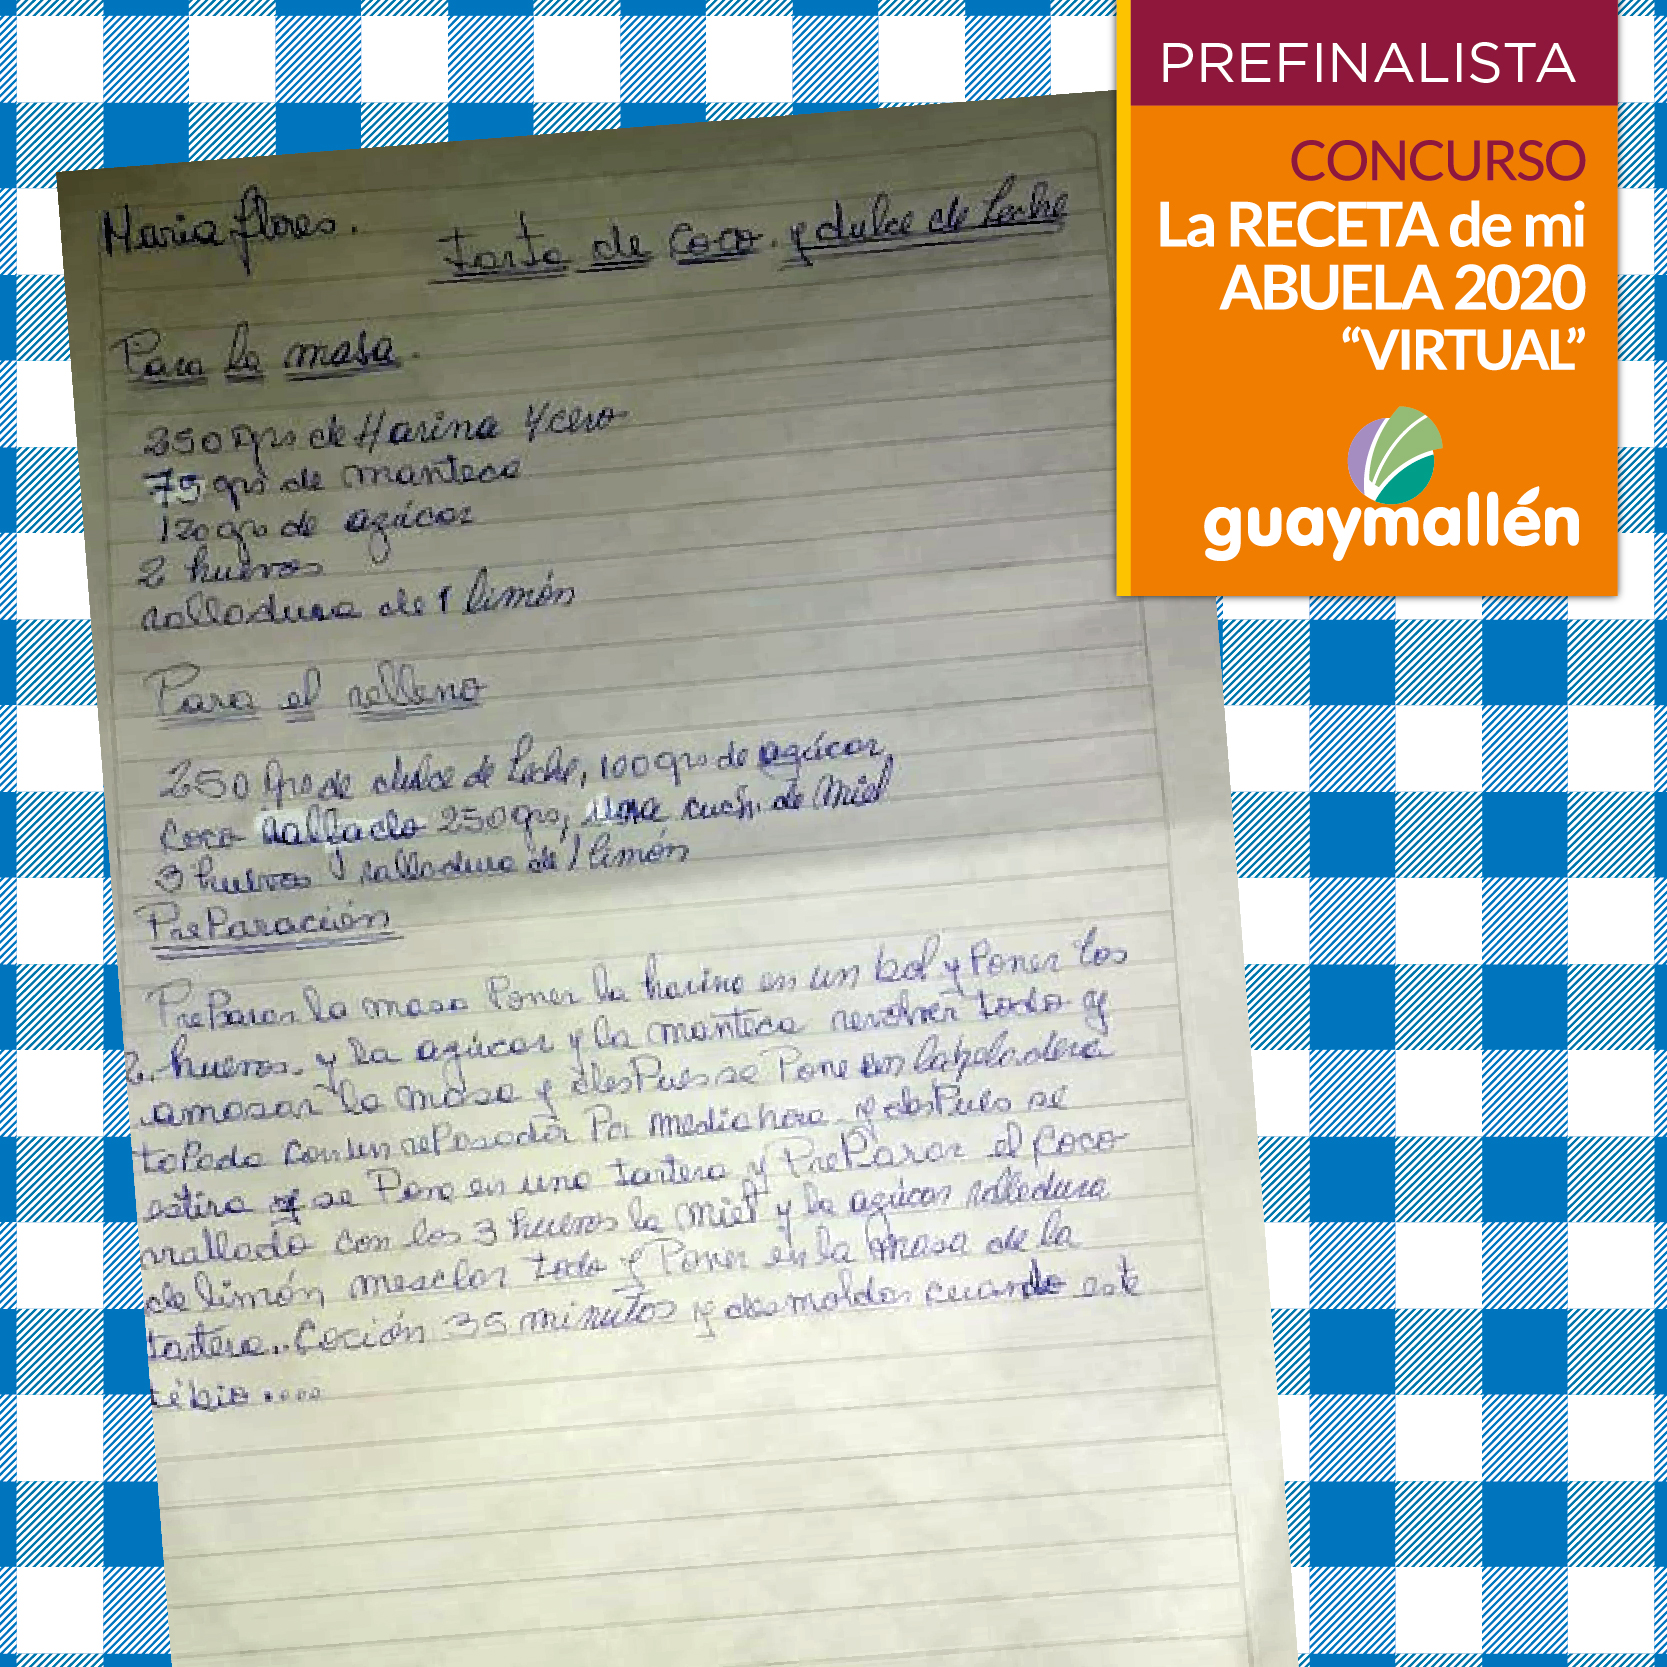 PREFINALISTA
CONCURSO
La RECETA de mi
ABUELA 2020
“VIRTUAL”
guaymallén
Maria flores.
tarta de coco. y dulce de Leche
Para la masa.
250 grs de Harina 4 cero
75 grs de manteca
120 grs de azúcar
2 huevos
ralladura de 1 limón
Para el relleno
250 grs de dulce de Leche, 100 grs de azúcar,
coco rallado 250 grs, una cuch. de Miel
3 huevos y ralladura de 1 limón
PreParación
PrePara la masa Poner la harina en un bol y Poner los
2. huevos. y la azúcar y la manteca revolver todo y
amasar la masa y desPues se Pone en la heladera
taPada con un rePasador Por media hora y desPues se
estira y se Pone en una tartera y PrePara el coco
rrallado con los 3 huevos la miel y la azúcar ralladura
de limón mesclar todo y Poner en la masa de la
tartera.. Coción 35 minutos y desmoldar cuando este
tébio....